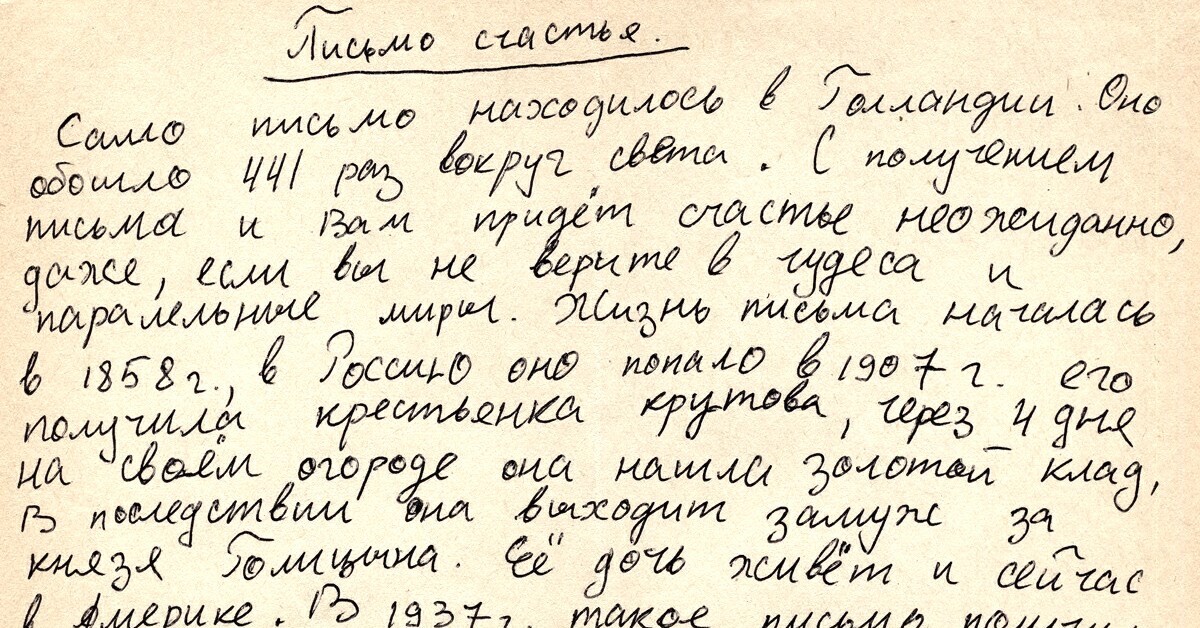 Письмо счастья.
Само письмо находилось в Голландии. Оно
обошло 441 раз вокруг света. С получением
письма и Вам придёт счастье неожиданно,
даже, если вы не верите в чудеса и
паралельные миры. Жизнь письма началась
в 1858 г., в Россию оно попало в 1907 г. его
получила крестьенка крутова, через 4 дня
на своём огороде она нашла золотой клад,
В последствии она выходит замуж за
князя Голицына. Её дочь живёт и сейчас
в Америке. В 1937 г. такое письмо